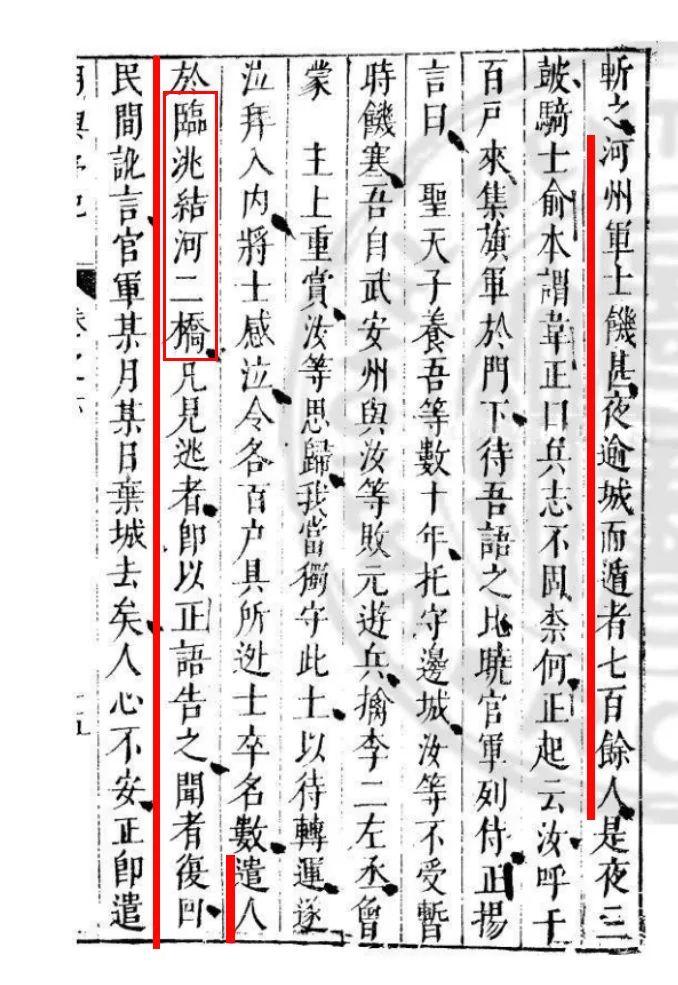 斬之河州軍士饑甚夜逾城而遁者七百餘人是夜三
皷騎士俞本謂韋正曰兵志不固柰何正起云汝呼千
百戶來集旗軍於門下待吾語之比曉官軍列侍正揚
言曰　聖天子養吾等數十年托守邊城汝等不受暫
時饑寒吾自武安州與汝等敗元遊兵擒李二左丞曾
蒙　主上重賞汝等思歸我當獨守此土以待轉運遂
泣拜入内將士感泣令各百户具所迯士卒名數遣人
於臨洮結河二橋凡見逃者卽以正語告之聞者復回
民間訛言官軍某月某日棄城去矣人心不安正卽遣